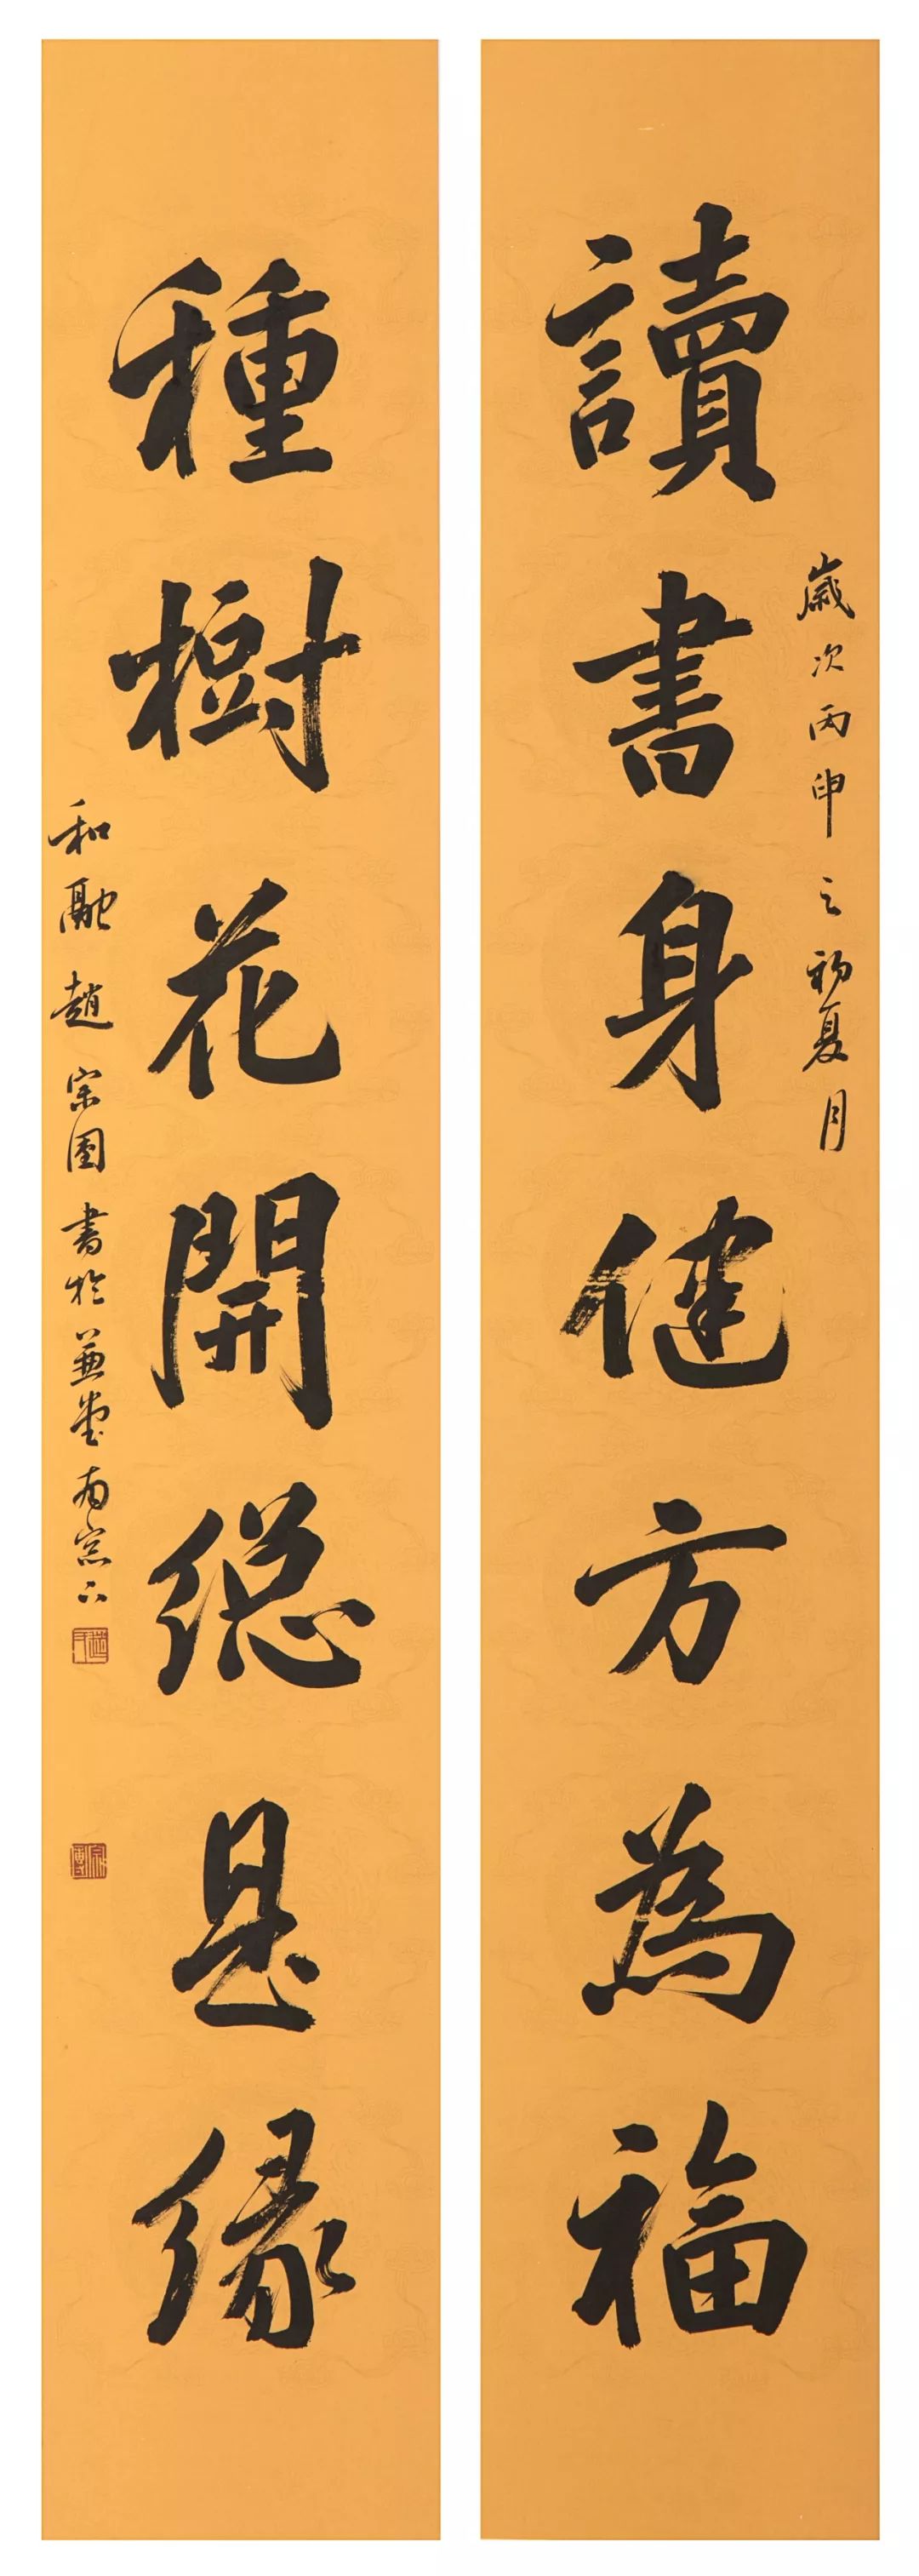 歲次丙申之初夏月
讀書身健方為福
種樹花開總是緣
和融趙宗圉書於並堂南窗下